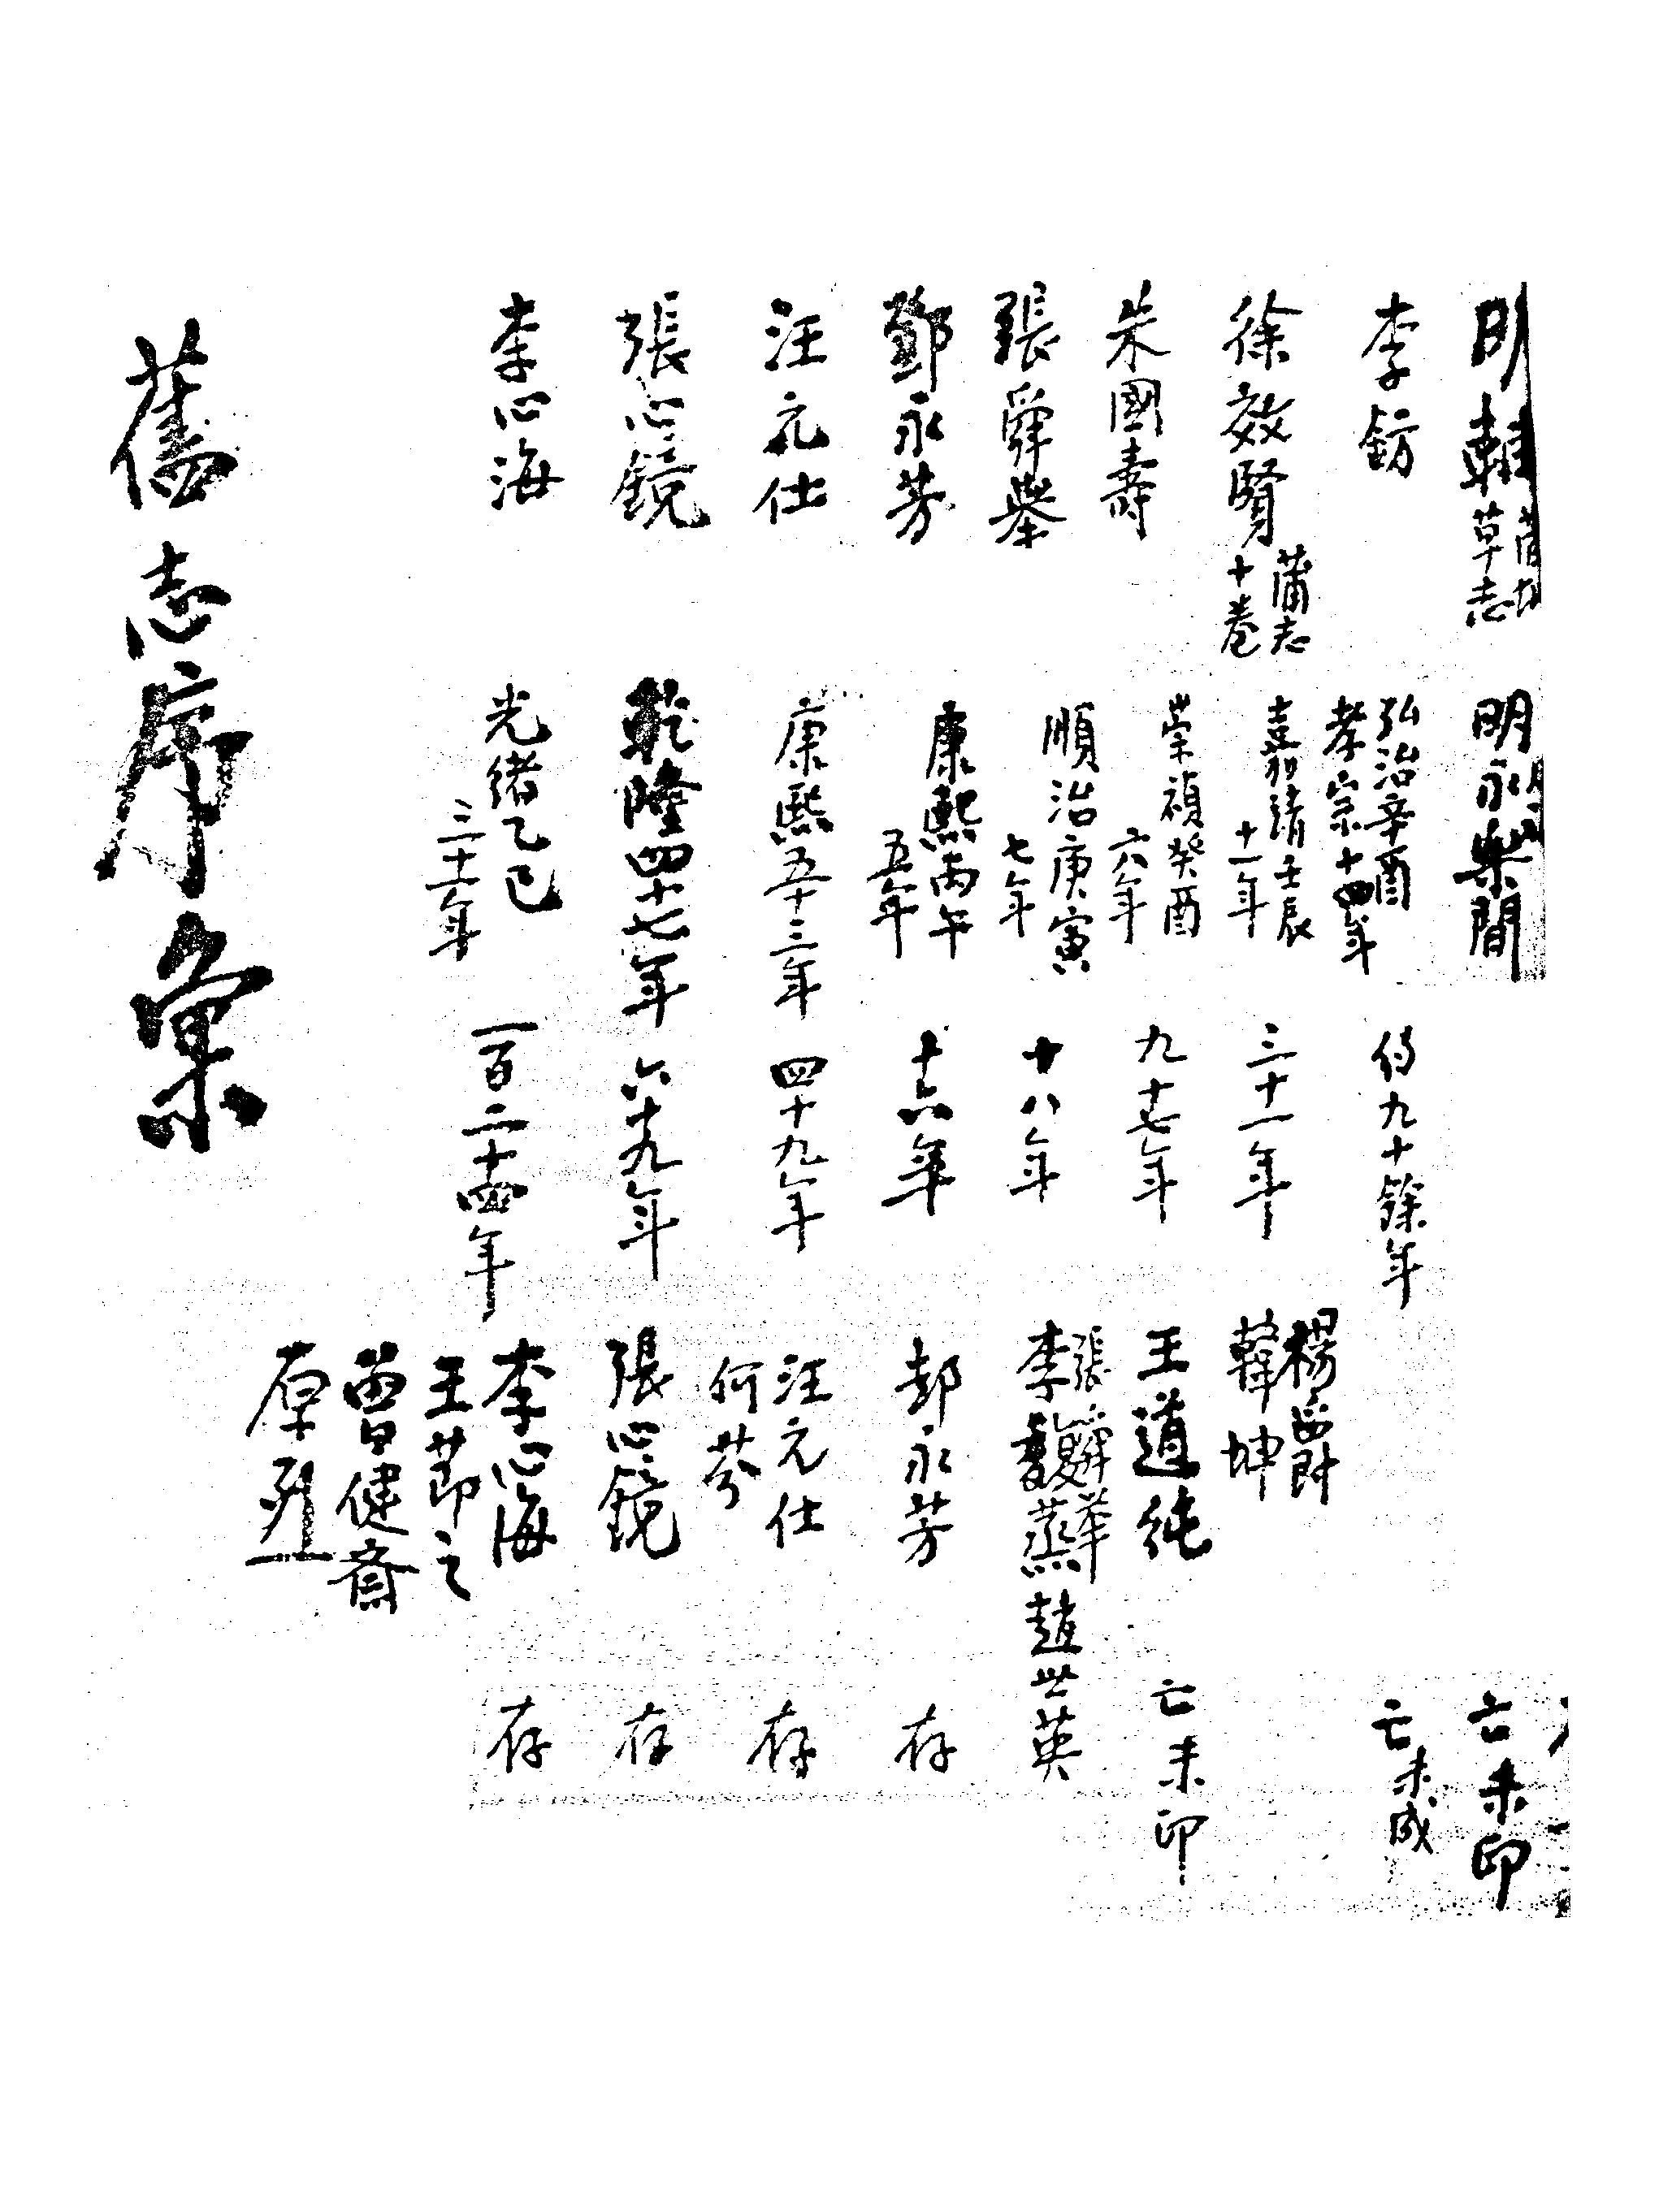 明
草志
明永樂間
亡未印
李鈁
弘治辛酉
孝宗十四年
約九十餘年
亡未成
徐效賢
蒲志
十卷
嘉靖壬辰
十一年
三十一年
楊爵
韓坤
朱國壽
崇禎癸酉
六年
九十七年
王道純
亡未印
張舜舉
順治庚寅
七年
十八年
張舜舉
李馥蒸 趙世英
鄧永芳
康熙丙午
五年
十六年
鄧永芳
存
汪元仕
康熙五十三年
四十九年
汪元仕
何芬
存
張心鏡
乾隆四十七年
六十九年
張心鏡
存
李心海
光緒乙巳
三十一年
一百二十四年
李心海
王節之
曾健齋
存
舊志序彙